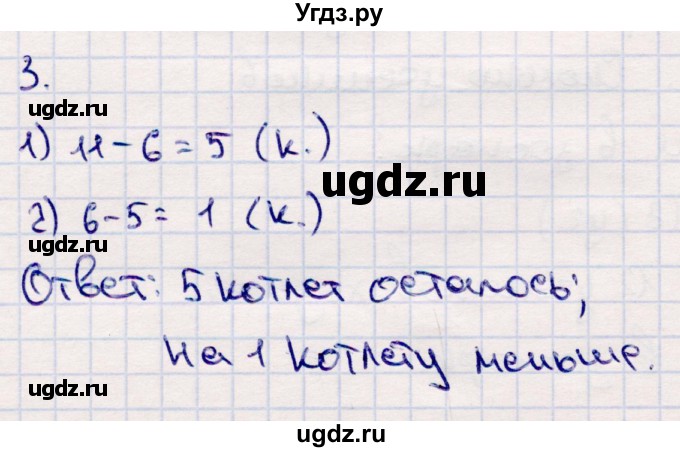 Угдз.ру
3.
ugdz.ru
1) 11-6=5 (к.)
ugdz.ru
2) 6-5= 1 (к.)
ugdz.ru
Ответ: 5 котлет осталось;
на 1 котлету меньше.
ugdz.ru
ugdz.ru